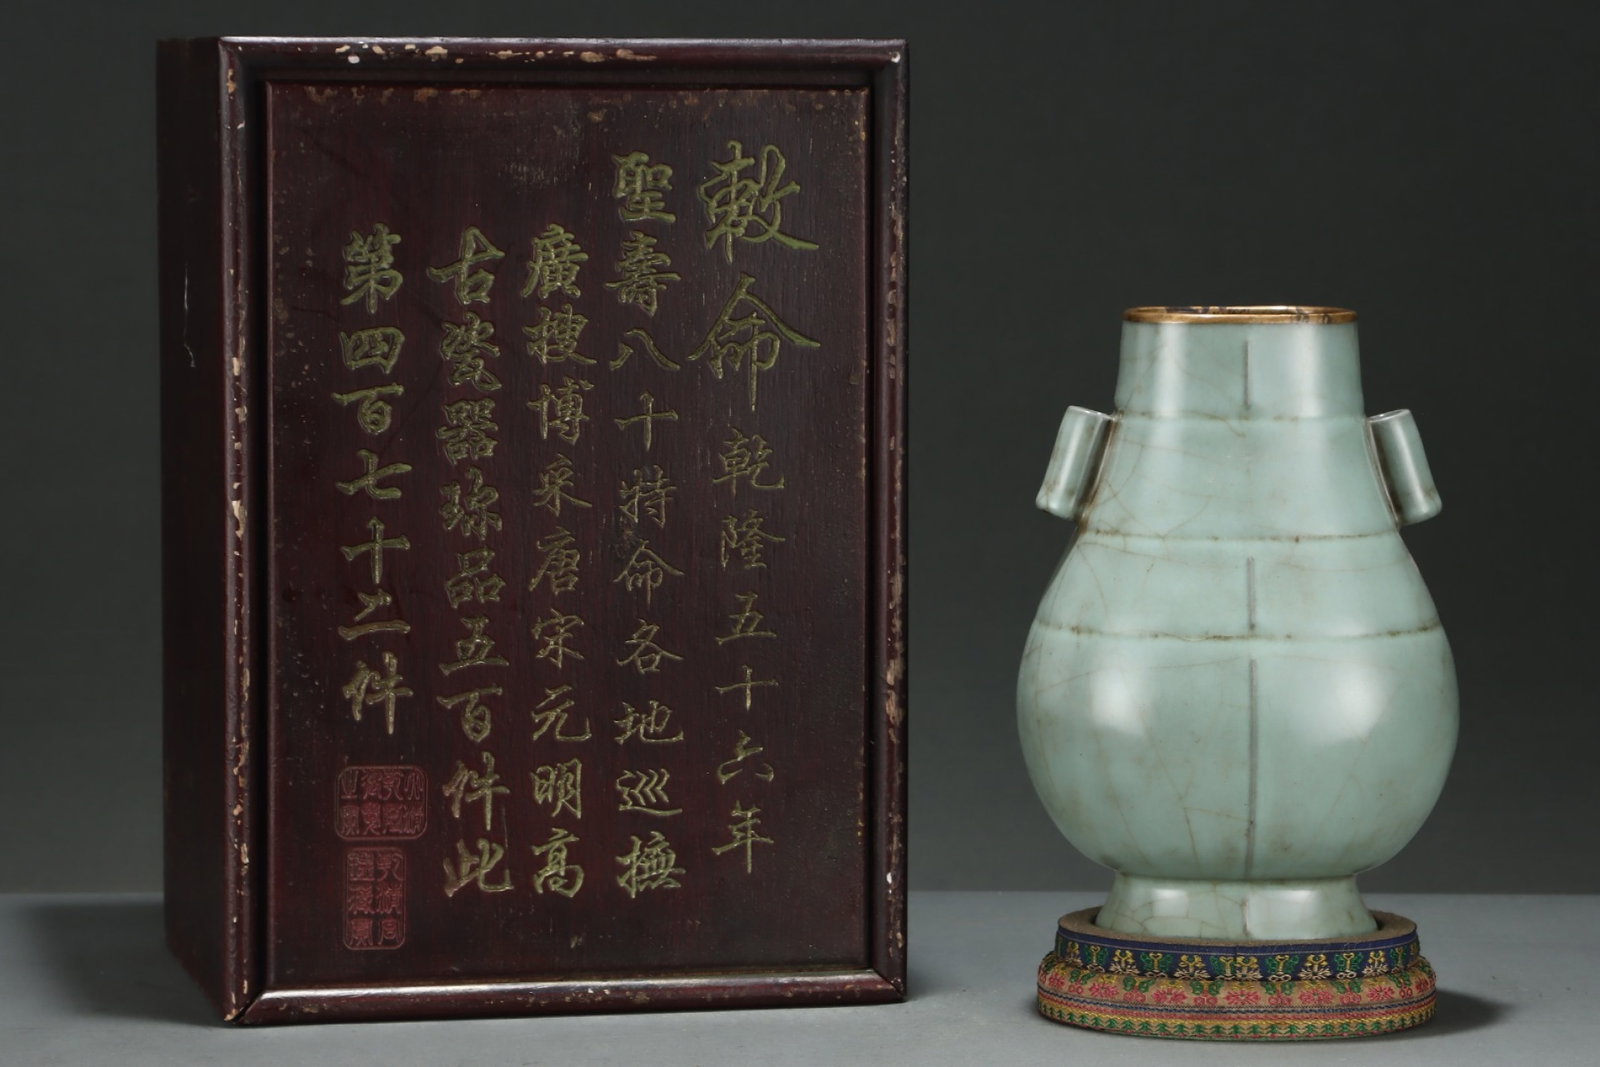 敕命乾隆五十六年
聖壽八十特命各地巡撫
廣搜博采唐宋元明高
古瓷器珍品五百件此
第四百七十二件